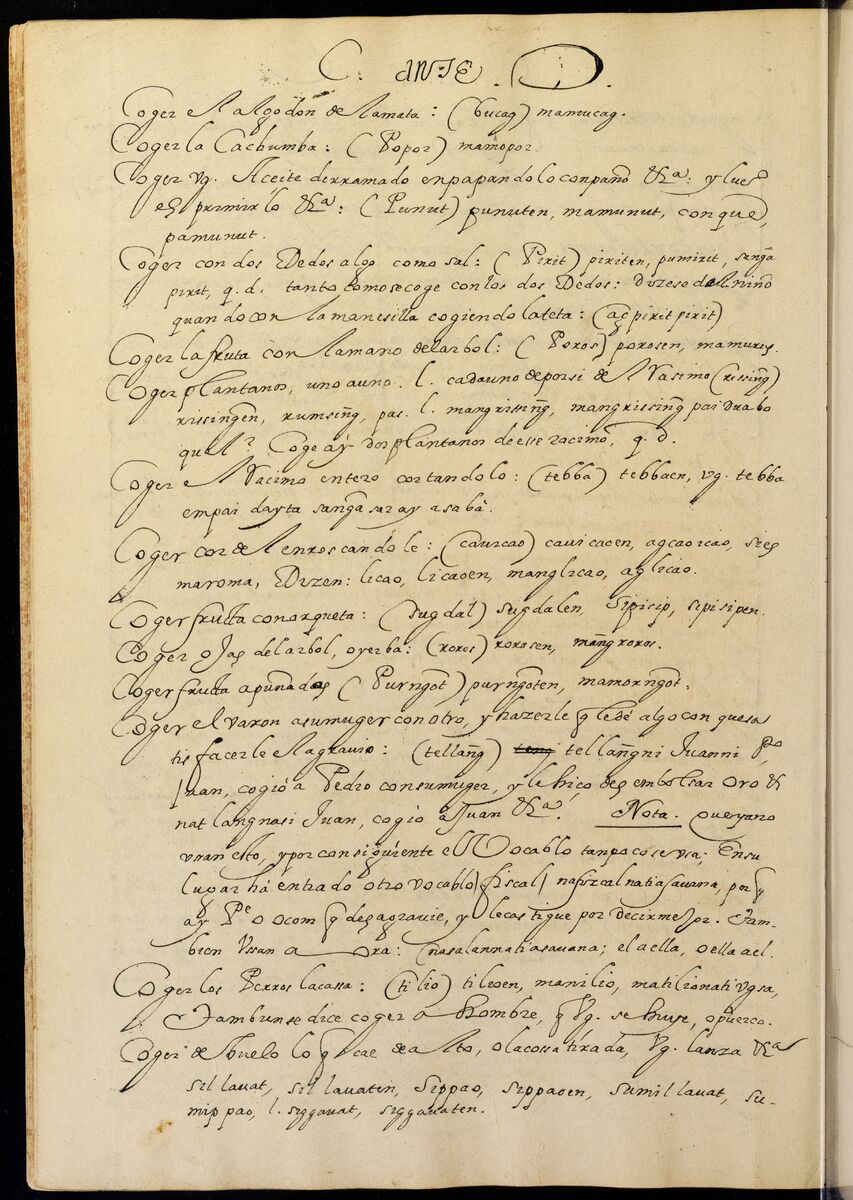 C. ANTE. O.
Coger el algodon de la mata: (bucag) mamucag.
Coger la Cachumba: (Popor) mamopor
Coger vg. Aceite derramado enpapandolo con paño &ca: y lueº
esprimirlo &ca: (Punut) punuten, mamunut, con que,
pamunut.
Coger con dos Dedos algo como sal: (Pirit) piriten, pumirit, sanga
pirit, q. d. tanto como se coge con los dos Dedos: dizese del niño
quando con la manesilla cogiendo la teta: (ag pirit pirit)
Coger la fruta con la mano del arbol: (Poros) porosen, mamuros.
Coger plantanos, uno a uno. l. cada uno de por si del Rasimo (rissing̃)
rissingen, rumsing̃, pas. l. mangrissing̃, mangrissing̃ pai dua bo
qual? Coge ay dos plantanos de esse racimo, q. d.
Coger el Racimo entero cortandolo: (tebba) tebbaen, vg. tebba
empai dayta sanga saray a saba.
Coger cordel enroscandole: (cauicao) cauicaoen, agcaoicao, si es
maroma, Dizen: licao, licaoen, manglicao, aglicao.
Coger frutta con orqueta: (sugdal) sugdalen, sipisip, sipisipen.
Coger ojas del arbol, o yerba: (roros) rorosen, mang̃roros.
Coger frutta a puñados (Purng̃ot) purng̃oten, mamorng̃ot.
Coger el varon a su muger con otro, y hazerle q̃ le dé algo con que sa
tisfacerle el agrauio: (tellang̃) teng tellang̃ni Juan ni Pº
Juan, cogió a Pedro con su muger, y le hiço des embolsar oro &
nat lang̃nasi Juan, cogio a Juan &ca. Nota. Que ya no
vsan esto, y por consiguiente el Vocablo tanpoco se vsa; En su
lugar há entrado otro vocablo /fiscal/ nafizcal natiasauana, por q̃
ay Pe o ocom q̃ desagravie, y le castigue por decirmelo. Tam-
bien Vsan aora: (nasalannatiasauana; el a ella, o ella a el.
Coger los Perros la cassa: (tilio) tilioen, manilio, matilionati vgsa,
Tambun se dice coger a Hombre, q̃ Vg. se huye, o puerco.
Coger de Buelo lo q̃ cae de alto, o la cossa tirada, Vg. lanza &ca
sillauat, sillauaten, sippao, sippaoen, sumillauat, su-
mippao, l. siggauat, siggauaten.